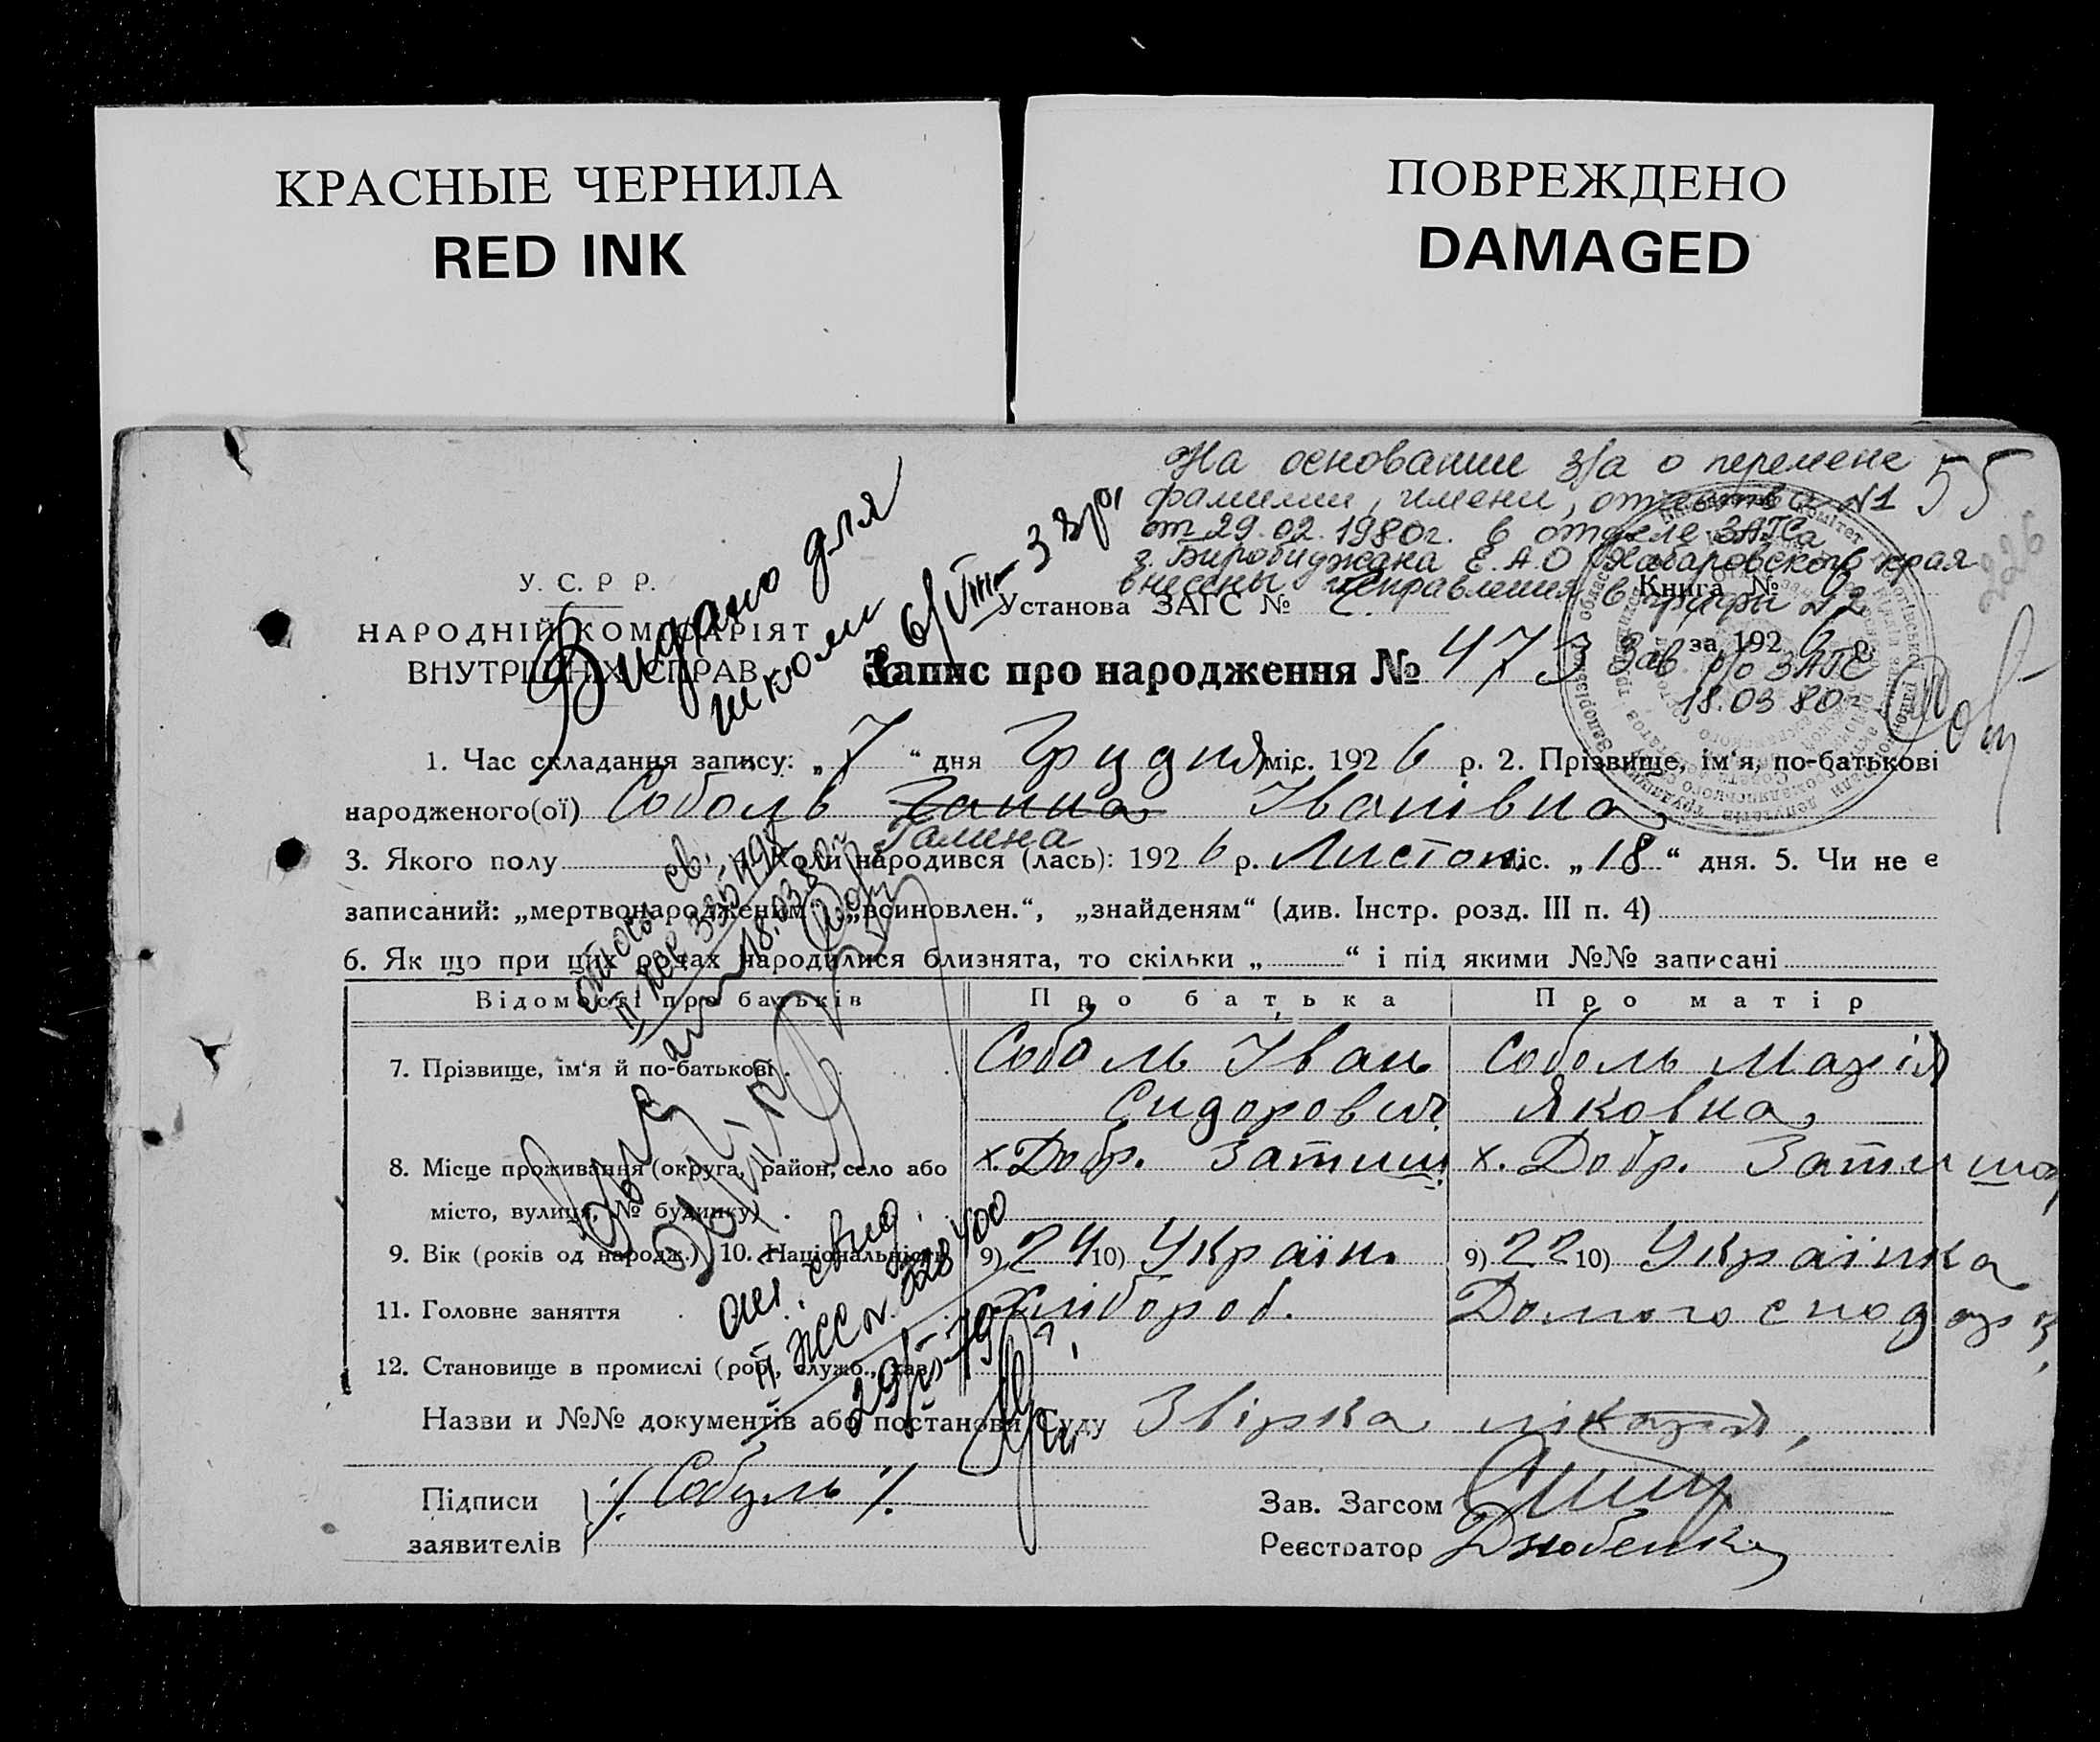 КРАСНЫЕ ЧЕРНИЛА
RED INK
ПОВРЕЖДЕНО
DAMAGED
На основании з/а о перемене
фамилии, имени, отчества №1
55
от 29.02.1980г. в отделе ЗАГСа
г. Биробиджана Е.А.О Хабаровского края
внесены исправления в графы №2
Зав р/о ЗАГС
18.03.80
Видано для
школи
У. С. Р Р.
НАРОДНІЙ КОМІСАРІЯТ
ВНУТРІШНІХ СПРАВ
Установа ЗАГС №
Книга № 2
за 1926 р.
Запис про народження № 473
1. Час складання запису: „7“ дня Грудня міс. 1926 р. 2. Прізвище, ім'я, по-батькові
народженого(ої) Соболь Ганна Іванівна
Галина
3. Якого полу 4. Коли народився (лась): 1926 р. Листоп. міс. „18“ дня. 5. Чи не є
записаний: „мертвонародженим“, „всиновлен.“, „знайденям“ (див. Інстр. розд. III п. 4)
6. Як що при цих родах народилися близнята, то скільки „ “ і під якими №№ записані
Відомості про батьків Про батька Про матір
7. Прізвище, ім'я й по-батькові Соболь Іван Соболь Марія
Сидорович Яковна
8. Місце проживання (округа, район, село або х. Добр. Затиш. х. Добр. Затиша
місто, вулиця, № будинку)
9. Вік (років од народж.) 10. Національність 9) 24 10) Україн. 9) 22 10) Українка
11. Головне заняття Хлібороб. Домогосподар
12. Становище в промислі (роб., служб., хаз.)
Назви и №№ документів або постанови Суду Звірка лікаря,
Підписи
заявителів
/. Собуль /.
Зав. Загсом
Реєстратор Дзюбенко
18.03.80